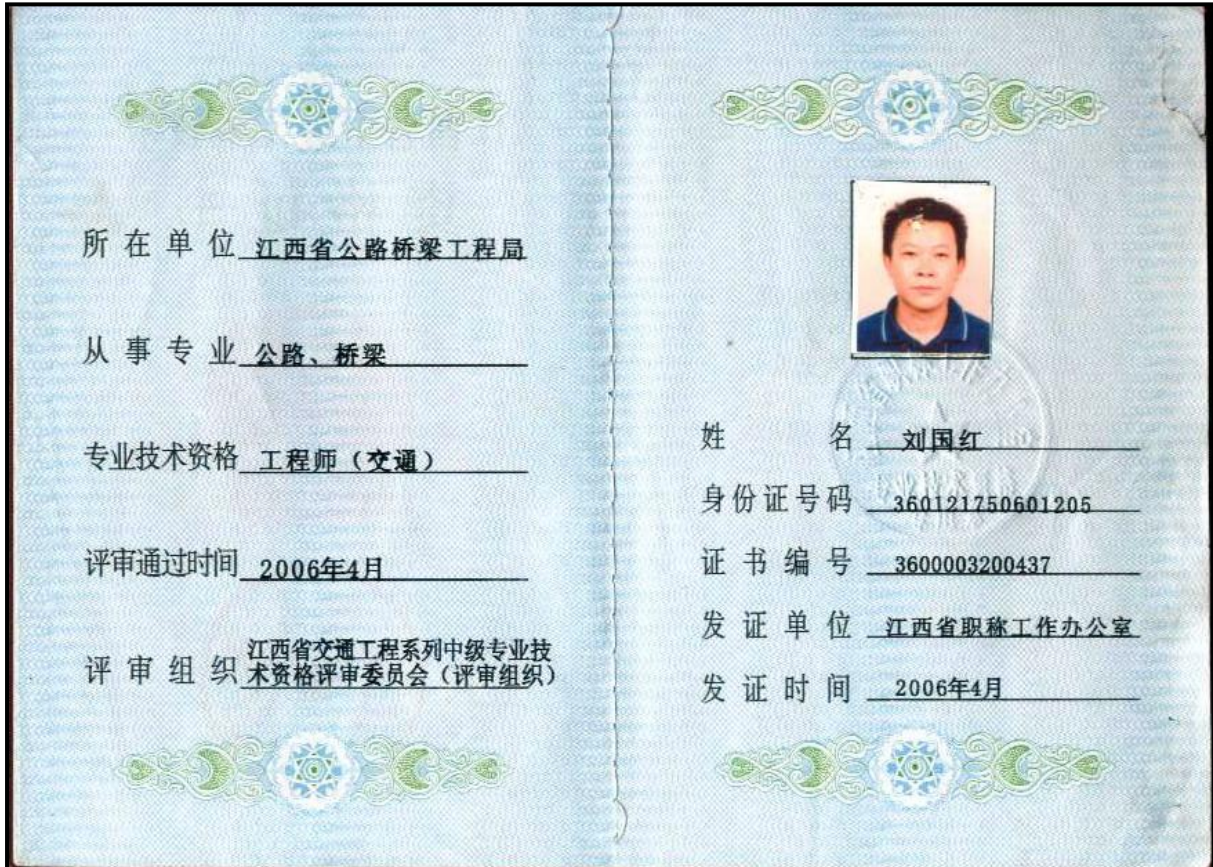 所在单位 江西省公路桥梁工程局
从事专业 公路、桥梁
专业技术资格 工程师（交通）
评审通过时间 2006年4月
评审组织 江西省交通工程系列中级专业技
术资格评审委员会（评审组织）
姓名 刘国红
身份证号码 360121750601205
证书编号 3600003200437
发证单位 江西省职称工作办公室
发证时间 2006年4月